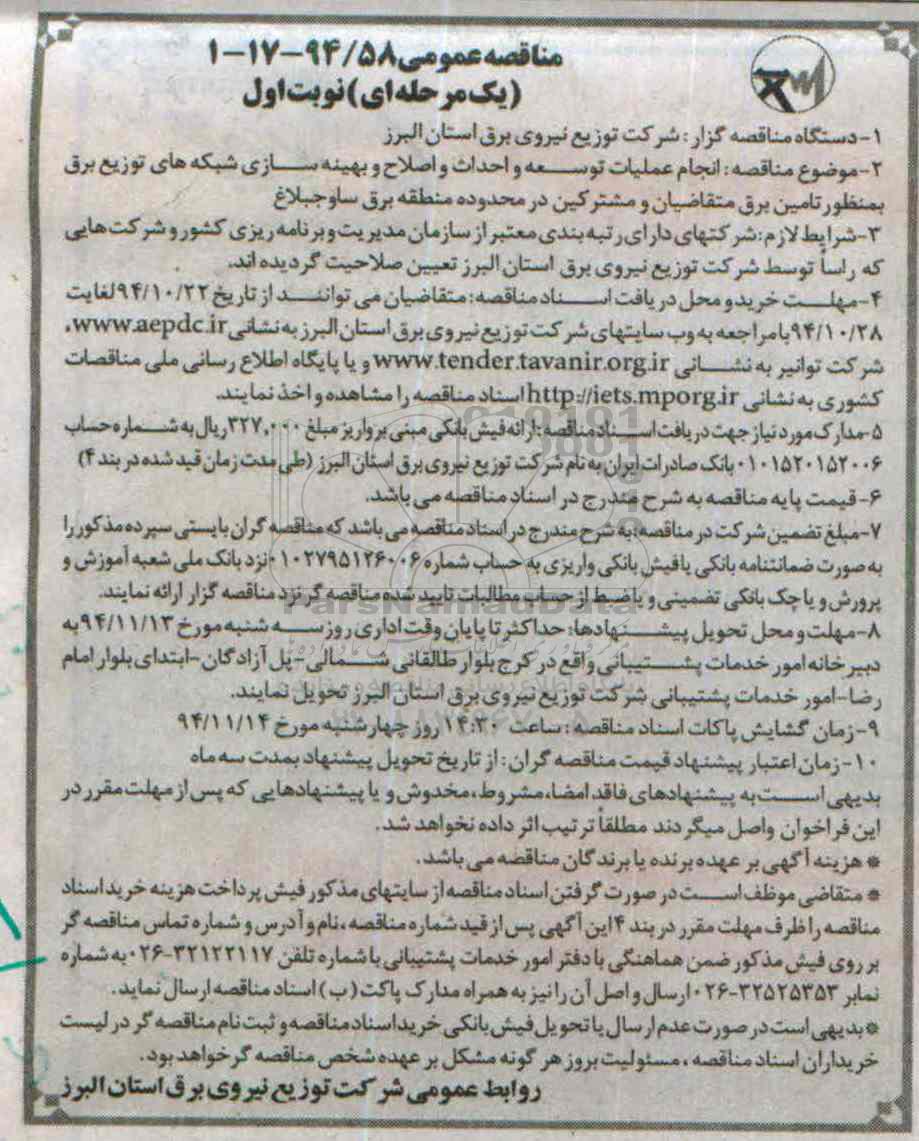 مناقصه عمومی ۹۴/۵۸-۱۷-۱
(یک مرحله ای) نوبت اول
۱-دستگاه مناقصه گزار: شرکت توزیع نیروی برق استان البرز
۲-موضوع مناقصه: انجام عملیات توسعه و احداث و اصلاح و بهینه سازی شبکه های توزیع برق
بمنظور تامین برق متقاضیان و مشترکین در محدوده منطقه برق ساوجبلاغ
۳-شرایط لازم: شرکتهای دارای رتبه بندی معتبر از سازمان مدیریت و برنامه ریزی کشور و شرکت هایی
که راساً توسط شرکت توزیع نیروی برق استان البرز تعیین صلاحیت گردیده اند.
۴-مهلت خرید و محل دریافت اسناد مناقصه: متقاضیان می توانند از تاریخ ۹۴/۱۰/۲۲ لغایت
۹۴/۱۰/۲۸ با مراجعه به وب سایتهای شرکت توزیع نیروی برق استان البرز به نشانی www.aepdc.ir،
شرکت توانیر به نشانی www.tender.tavanir.org.ir و یا پایگاه اطلاع رسانی ملی مناقصات
کشوری به نشانی http://iets.mporg.ir اسناد مناقصه را مشاهده و اخذ نمایند.
۵-مدارک مورد نیاز جهت دریافت اسناد مناقصه: ارائه فیش بانکی مبنی بر واریز مبلغ ۳۲۷,۰۰۰ ریال به شماره حساب
۰۱۰۱۵۲۰۱۵۲۰۰۶ بانک صادرات ایران به نام شرکت توزیع نیروی برق استان البرز (طی مدت زمان قید شده در بند ۴)
۶- قیمت پایه مناقصه به شرح مندرج در اسناد مناقصه می باشد.
۷-مبلغ تضمین شرکت در مناقصه: به شرح مندرج در اسناد مناقصه می باشد که مناقصه گران بایستی سپرده مذکور را
به صورت ضمانتنامه بانکی یا فیش بانکی واریزی به حساب شماره ۰۱۰۲۷۹۵۱۲۶۰۰۶ نزد بانک ملی شعبه آموزش و
پرورش و یا چک بانکی تضمینی و یا ضبط از حساب مطالبات تایید شده مناقصه گر نزد مناقصه گزار ارائه نمایند.
۸-مهلت و محل تحویل پیشنهادها: حداکثر تا پایان وقت اداری روز سه شنبه مورخ ۹۴/۱۱/۱۳ به
دبیرخانه امور خدمات پشتیبانی واقع در کرج بلوار طالقانی شمالی-پل آزادگان-ابتدای بلوار امام
رضا-امور خدمات پشتیبانی شرکت توزیع نیروی برق استان البرز تحویل نمایند.
۹-زمان گشایش پاکات اسناد مناقصه: ساعت ۱۴:۳۰ روز چهارشنبه مورخ ۹۴/۱۱/۱۴
۱۰-زمان اعتبار پیشنهاد قیمت مناقصه گران: از تاریخ تحویل پیشنهاد بمدت سه ماه
بدیهی است به پیشنهادهای فاقد امضا، مشروط، مخدوش و یا پیشنهادهایی که پس از مهلت مقرر در
این فراخوان واصل میگردند مطلقاً ترتیب اثر داده نخواهد شد.
* هزینه آگهی بر عهده برنده یا برندگان مناقصه می باشد.
* متقاضی موظف است در صورت گرفتن اسناد مناقصه از سایتهای مذکور فیش پرداخت هزینه خرید اسناد
مناقصه را ظرف مهلت مقرر در بند ۴ این آگهی پس از قید شماره مناقصه، نام و آدرس و شماره تماس مناقصه گر
بر روی فیش مذکور ضمن هماهنگی با دفتر امور خدمات پشتیبانی با شماره تلفن ۳۲۱۲۲۱۱۷-۰۲۶ به شماره
نمابر ۳۲۵۲۵۳۵۳-۰۲۶ ارسال و اصل آن را نیز به همراه مدارک پاکت (ب) اسناد مناقصه ارسال نماید.
* بدیهی است در صورت عدم ارسال یا تحویل فیش بانکی خرید اسناد مناقصه و ثبت نام مناقصه گر در لیست
خریداران اسناد مناقصه، مسئولیت بروز هر گونه مشکل بر عهده شخص مناقصه گر خواهد بود.
روابط عمومی شرکت توزیع نیروی برق استان البرز
ParsNamadData